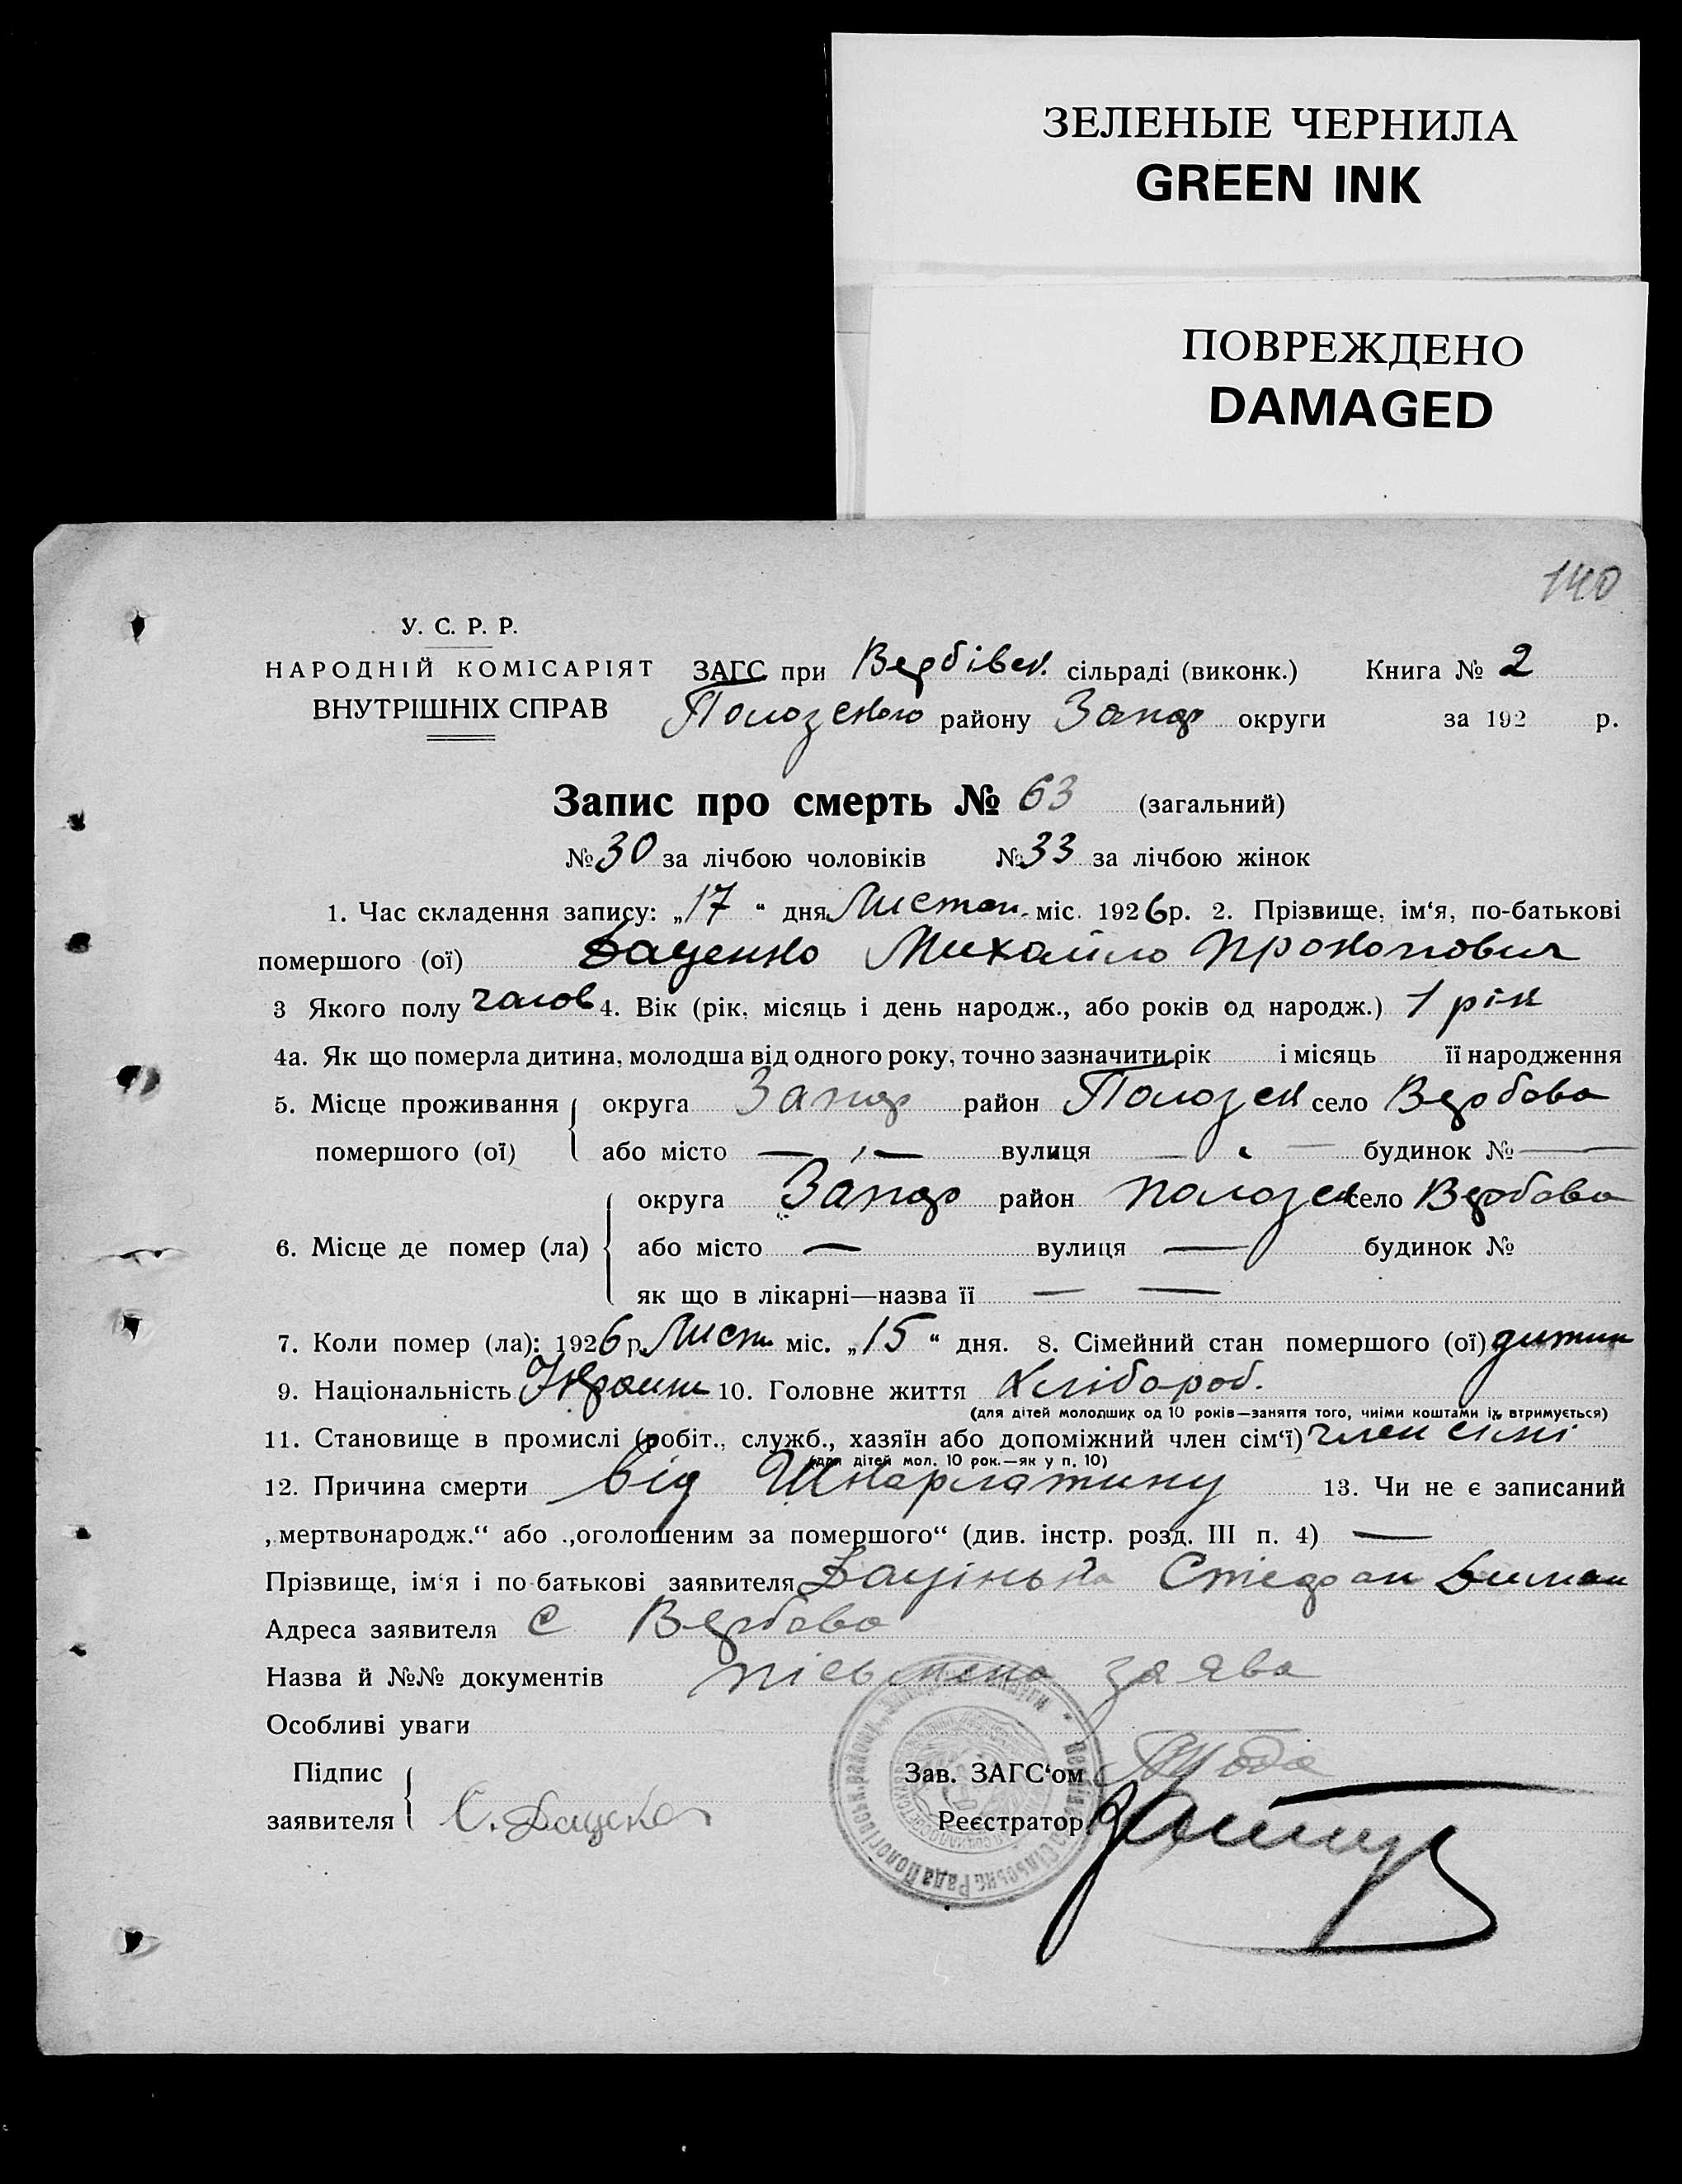 ЗЕЛЕНЫЕ ЧЕРНИЛА
GREEN INK
ПОВРЕЖДЕНО
DAMAGED
140
У. С. Р. Р.
НАРОДНІЙ КОМІСАРІЯТ
ВНУТРІШНІХ СПРАВ
ЗАГС при Вербівск. сільраді (виконк.) Книга № 2
Пологського району Запор округи за 192 р.
Запис про смерть № 63 (загальний)
№ 30 за лічбою чоловіків № 33 за лічбою жінок
1. Час складення запису: „17“ дня Листоп. міс. 1926 р. 2. Прізвище, ім‘я, по-батькові
помершого (ої) Даценко Михайло Прокопович
3 Якого полу чолов 4. Вік (рік, місяць і день народж., або років од народж.) 1 рік
4а. Як що померла дитина, молодша від одного року, точно зазначити рік і місяць її народження
5. Місце проживання помершого (ої) округа Запор район Пологск село Вербова
або місто — вулиця — будинок № —
6. Місце де помер (ла) округа Запор район Пологск село Вербова
або місто — вулиця — будинок №
як що в лікарні—назва її — —
7. Коли помер (ла): 1926 р. Лист міс. „15“ дня. 8. Сімейний стан помершого (ої) дитин
9. Національність Украин 10. Головне життя Хлібороб.
(для дітей молодших од 10 років—заняття того, чиїми коштами їх втримується)
11. Становище в промислі (робіт., служб., хазяїн або допоміжний член сім‘ї) член сімі
(для дітей мол. 10 рок.—як у п. 10)
12. Причина смерти від Шкарлатину 13. Чи не є записаний
„мертвонародж.“ або „оголошеним за помершого“ (див. інстр. розд. III п. 4) —
Прізвище, ім‘я і по-батькові заявителя Стефан
Адреса заявителя с Вербова
Назва й №№ документів письмена заява
Особливі уваги
Підпис заявителя С.
Зав. ЗАГС‘ом
Реєстратор